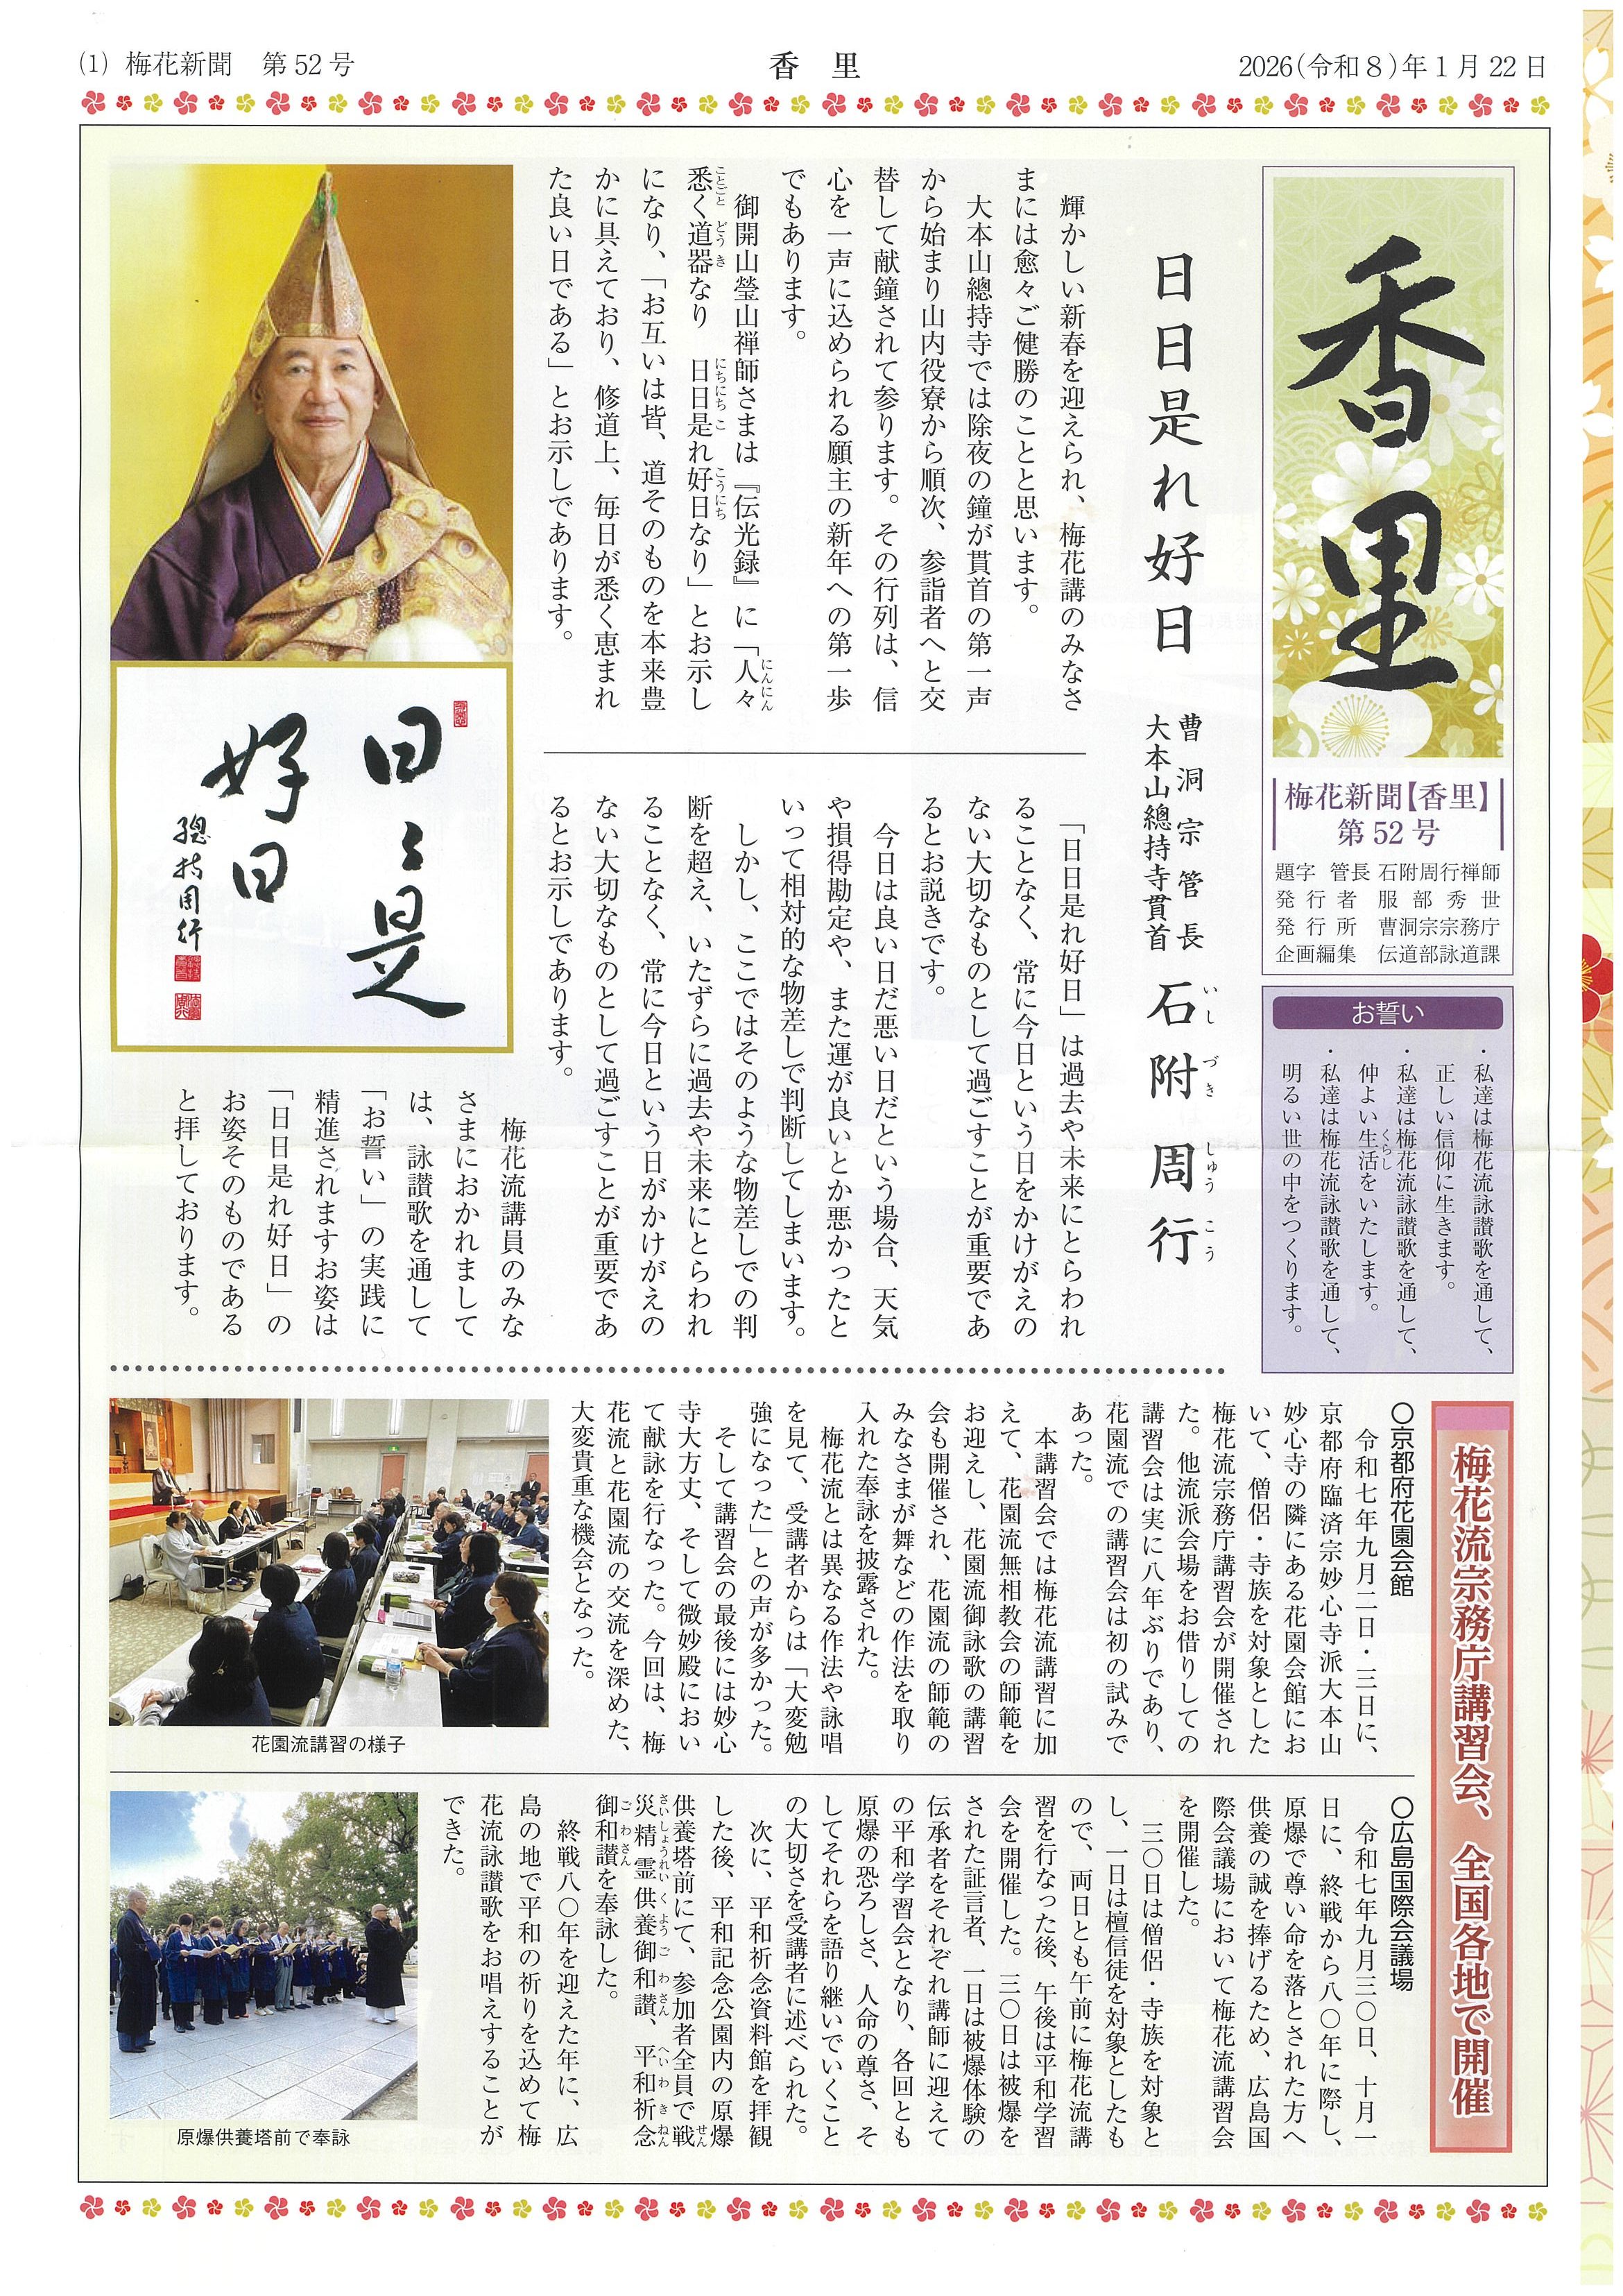 (1) 梅花新聞　第52号
香　里
2026(令和8)年1月22日
香里
梅花新聞【香里】
第52号
題字　管長　石附周行禅師
発行者　服部秀世
発行所　曹洞宗宗務庁
企画編集　伝道部詠道課
お誓い
・私達は梅花流詠讃歌を通して、
正しい信仰に生きます。
・私達は梅花流詠讃歌を通して、
仲よい生活をいたします。
くらし
・私達は梅花流詠讃歌を通して、
明るい世の中をつくります。
日日是れ好日
曹洞宗管長
大本山總持寺貫首
石附周行
いし づき しゅう こう
輝かしい新春を迎えられ、梅花講のみなさ
まには愈々ご健勝のことと思います。
大本山總持寺では除夜の鐘が貫首の第一声
から始まり山内役寮から順次、参詣者へと交
替して献鐘されて参ります。その行列は、信
心を一声に込められる願主の新年への第一歩
でもあります。
御開山瑩山禅師さまは『伝光録』に「人々
にんにん
悉く道器なり　日日是れ好日なり」とお示し
ことごと どうき にちにち こ こうにち
になり、「お互いは皆、道そのものを本来豊
かに具えており、修道上、毎日が悉く恵まれ
た良い日である」とお示しであります。
「日日是れ好日」は過去や未来にとらわれ
ることなく、常に今日という日をかけがえの
ない大切なものとして過ごすことが重要であ
るとお説きです。
今日は良い日だ悪い日だという場合、天気
や損得勘定や、また運が良いとか悪かったと
いって相対的な物差しで判断してしまいます。
しかし、ここではそのような物差しでの判
断を超え、いたずらに過去や未来にとらわれ
ることなく、常に今日という日がかけがえの
ない大切なものとして過ごすことが重要であ
るとお示しであります。
梅花流講員のみな
さまにおかれまして
は、詠讃歌を通して
「お誓い」の実践に
精進されますお姿は
「日日是れ好日」の
お姿そのものである
と拝しております。
日々是
好日
總持周行
梅花流宗務庁講習会、全国各地で開催
〇京都府花園会館
令和七年九月二日・三日に、
京都府臨済宗妙心寺派大本山
妙心寺の隣にある花園会館にお
いて、僧侶・寺族を対象とした
梅花流宗務庁講習会が開催され
た。他流派会場をお借りしての
講習会は実に八年ぶりであり、
花園流での講習会は初の試みで
あった。
本講習会では梅花流講習に加
えて、花園流無相教会の師範を
お迎えし、花園流御詠歌の講習
会も開催され、花園流の師範の
みなさまが舞などの作法を取り
入れた奉詠を披露された。
梅花流とは異なる作法や詠唱
を見て、受講者からは「大変勉
強になった」との声が多かった。
そして講習会の最後には妙心
寺大方丈、そして微妙殿におい
て献詠を行なった。今回は、梅
花流と花園流の交流を深めた、
大変貴重な機会となった。
花園流講習の様子
〇広島国際会議場
令和七年九月三〇日、十月一
日に、終戦から八〇年に際し、
原爆で尊い命を落とされた方へ
供養の誠を捧げるため、広島国
際会議場において梅花流講習会
を開催した。
三〇日は僧侶・寺族を対象と
し、一日は檀信徒を対象としたも
ので、両日とも午前に梅花流講
習を行なった後、午後は平和学習
会を開催した。三〇日は被爆を
された証言者、一日は被爆体験の
伝承者をそれぞれ講師に迎えて
の平和学習会となり、各回とも
原爆の恐ろしさ、人命の尊さ、そ
してそれらを語り継いでいくこと
の大切さを受講者に述べられた。
次に、平和祈念資料館を拝観
した後、平和記念公園内の原爆
供養塔前にて、参加者全員で戦
せん
災精霊供養御和讃、平和祈念
さいしょうれいくようごわさん へいわきねん
御和讃を奉詠した。
ごわさん
終戦八〇年を迎えた年に、広
島の地で平和の祈りを込めて梅
花流詠讃歌をお唱えすることが
できた。
原爆供養塔前で奉詠